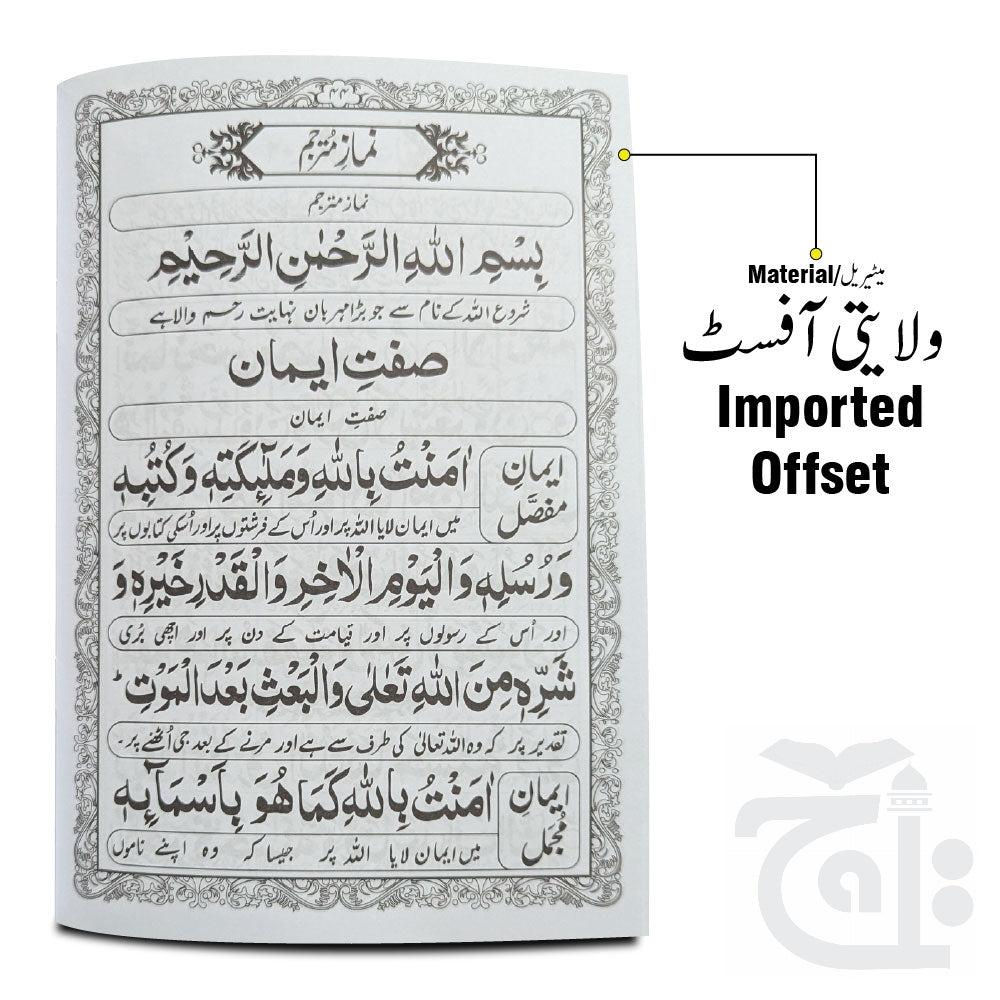 ۴۴
نمازِ مُترجم
نماز مترجم
بِسْمِ اللهِ الرَّحْمٰنِ الرَّحِيْمِ
شروع اللہ کے نام سے جو بڑا مہربان نہایت رحم والا ہے
صفتِ ایمان
صفتِ ایمان
ایمانِ مفصَّل
اٰمَنْتُ بِاللهِ وَمَلٰٓئِكَتِهٖ وَكُتُبِهٖ
میں ایمان لایا اللہ پر اور اُس کے فرشتوں پر اور اُسکی کتابوں پر
وَرُسُلِهٖ وَالْيَوْمِ الْاٰخِرِ وَالْقَدْرِ خَيْرِهٖ وَ
اور اُس کے رسولوں پر اور قیامت کے دن پر اور اچھی بُری
شَرِّهٖ مِنَ اللهِ تَعَالٰى وَالْبَعْثِ بَعْدَ الْمَوْتِ ؕ
تقدیر پر کہ وہ اللہ تعالیٰ کی طرف سے ہے اور مرنے کے بعد جی اُٹھنے پر۔
ایمانِ مُجمل
اٰمَنْتُ بِاللهِ كَمَا هُوَ بِاَسْمَآئِهٖ
میں ایمان لایا اللہ پر جیسا کہ وہ اپنے ناموں
Material/میٹیریل
ولایتی آفسٹ
Imported
Offset